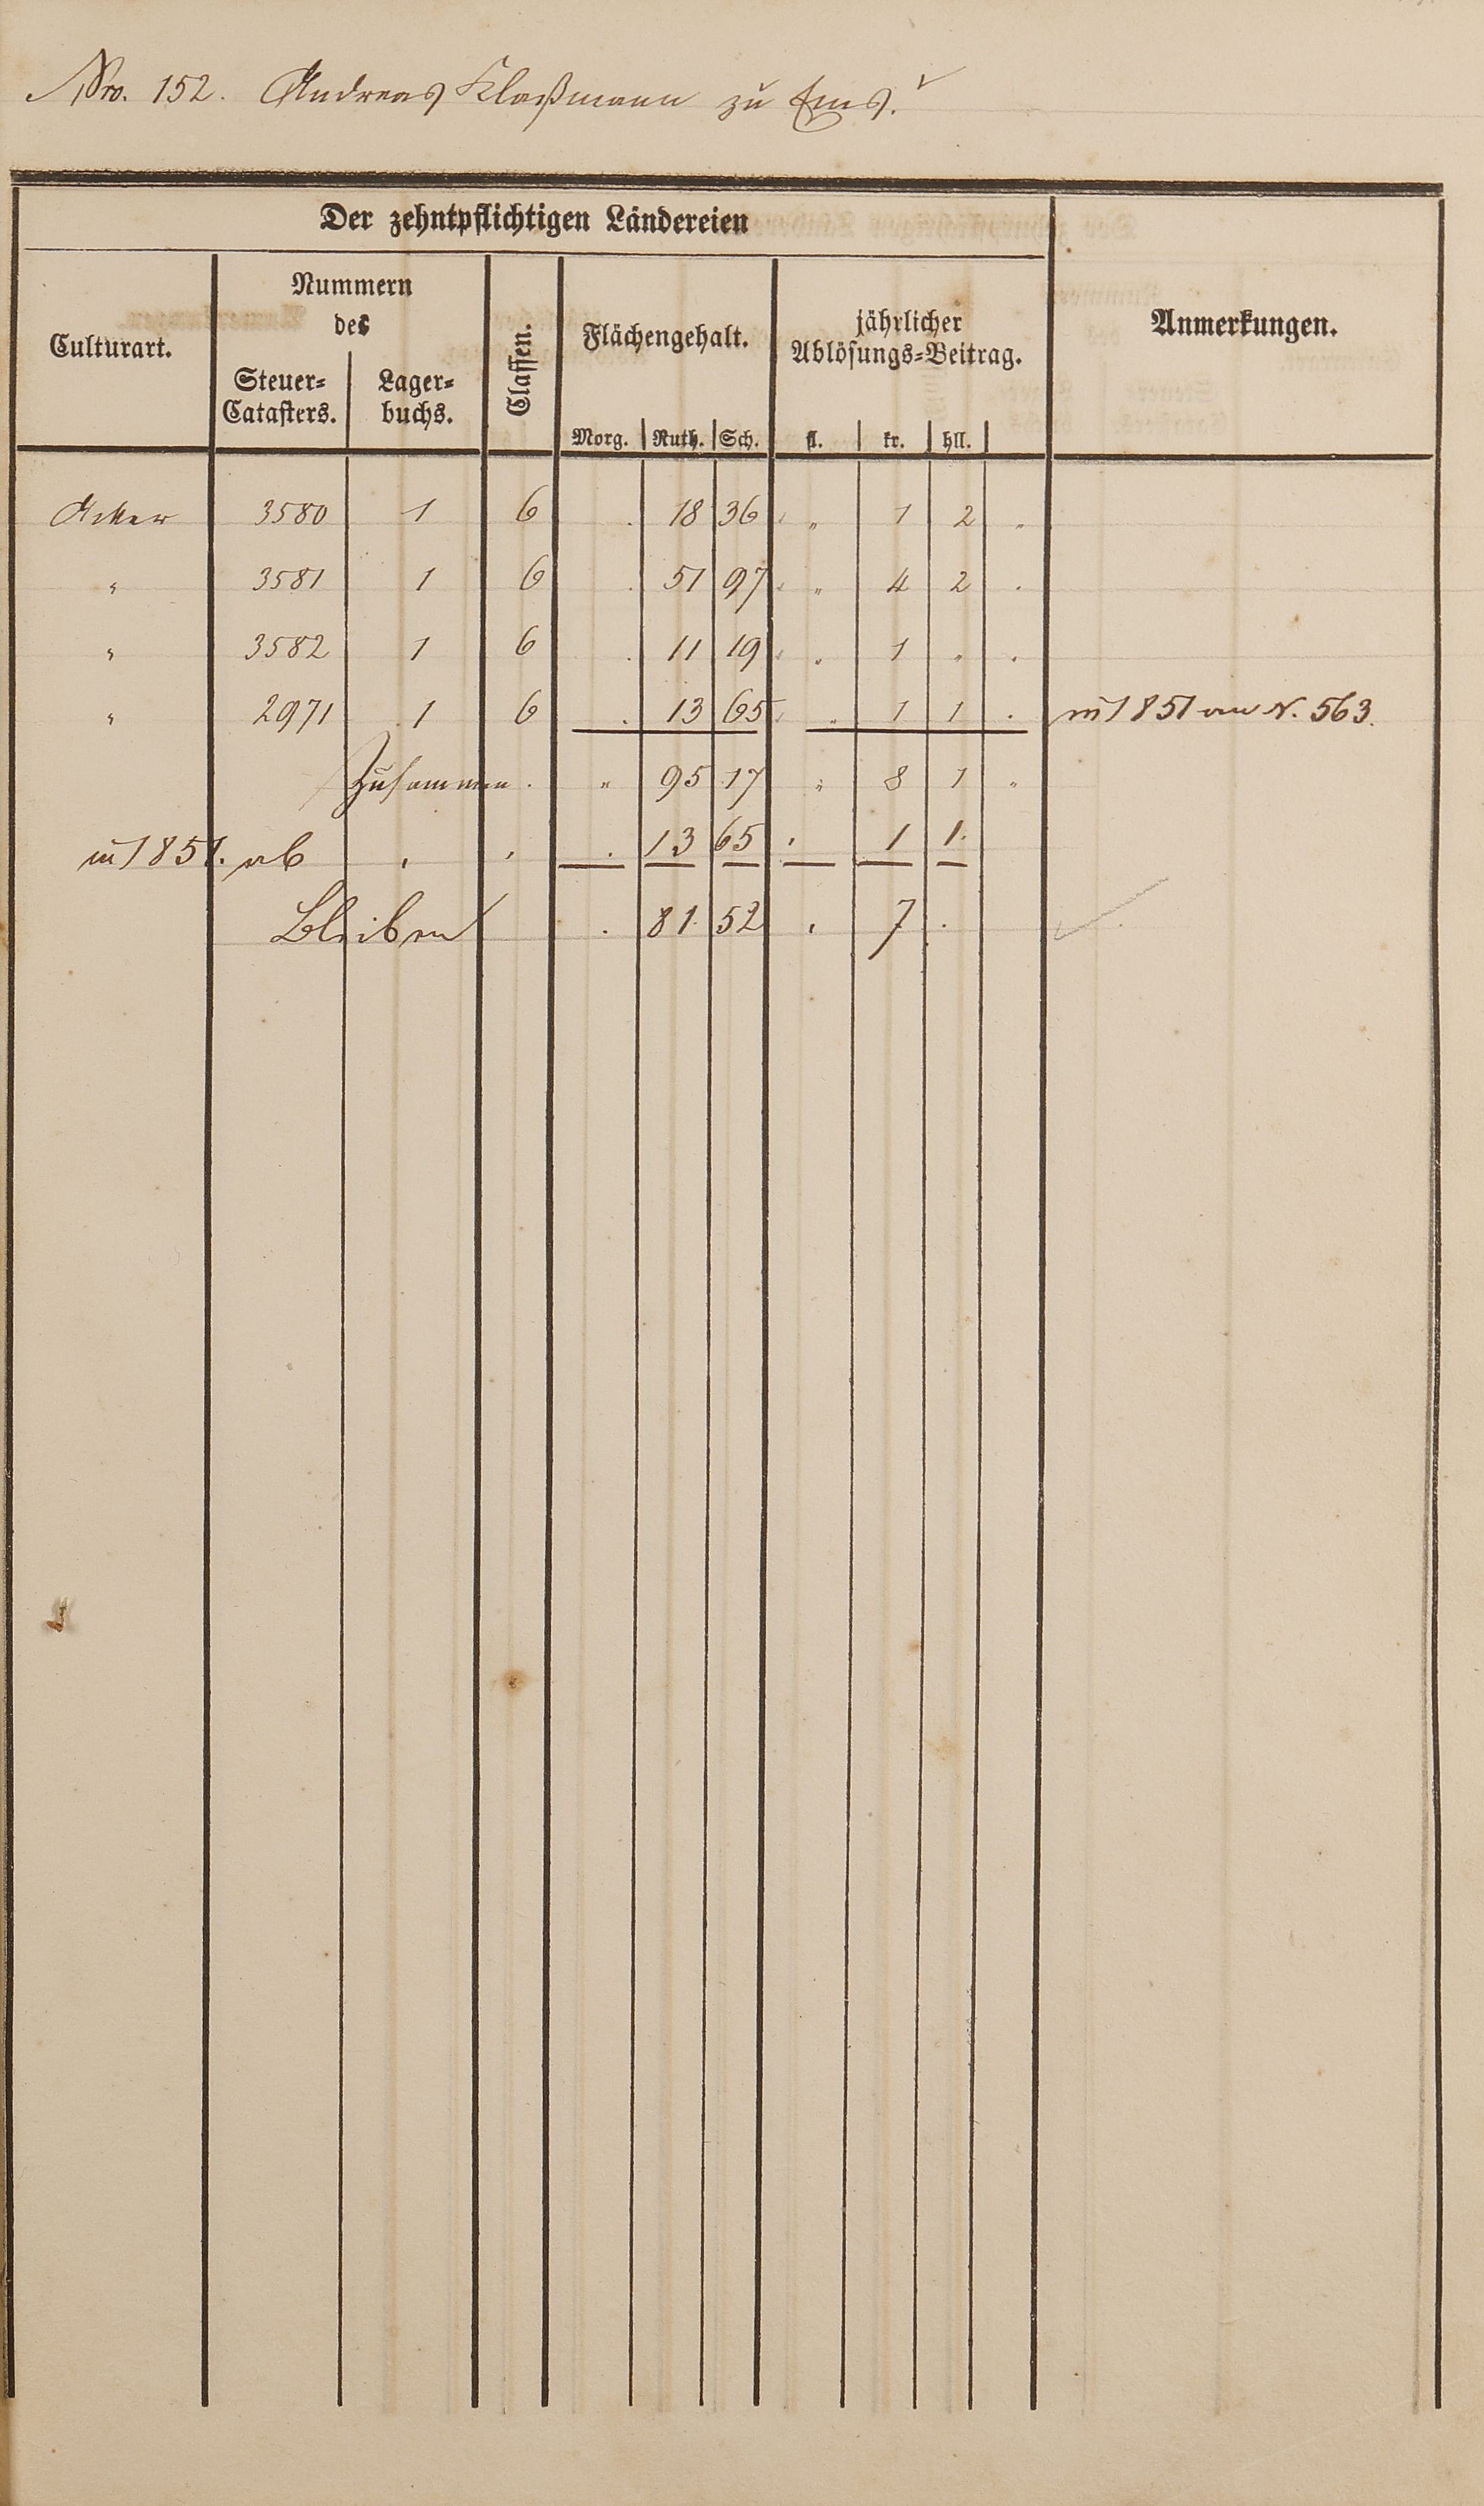 Nro. 152. Andreas Klaßmann zu Ems.
Der zehntpflichtigen Ländereien
Culturart.
Nummern
des
Steuer=
Catasters.
Lager=
buchs.
Classen.
Flächengehalt.
Morg. Ruth. Sch.
jährlicher
Ablösungs=Beitrag.
fl. kr. hll.
Anmerkungen.
Acker 3580 1 6 . 18 36 „ 1 2 „
„ 3581 1 6 . 51 97 „ 4 2 .
„ 3582 1 6 . 11 19 „ 1 „ .
„ 2971 1 6 . 13 65 „ 1 1 . in 1851 an N. 563.
Zusammen. „ 95 17 „ 8 1 „
in 1851. ab . 13 65 . 1 1.
Bleiben . 81 52 . 7 .